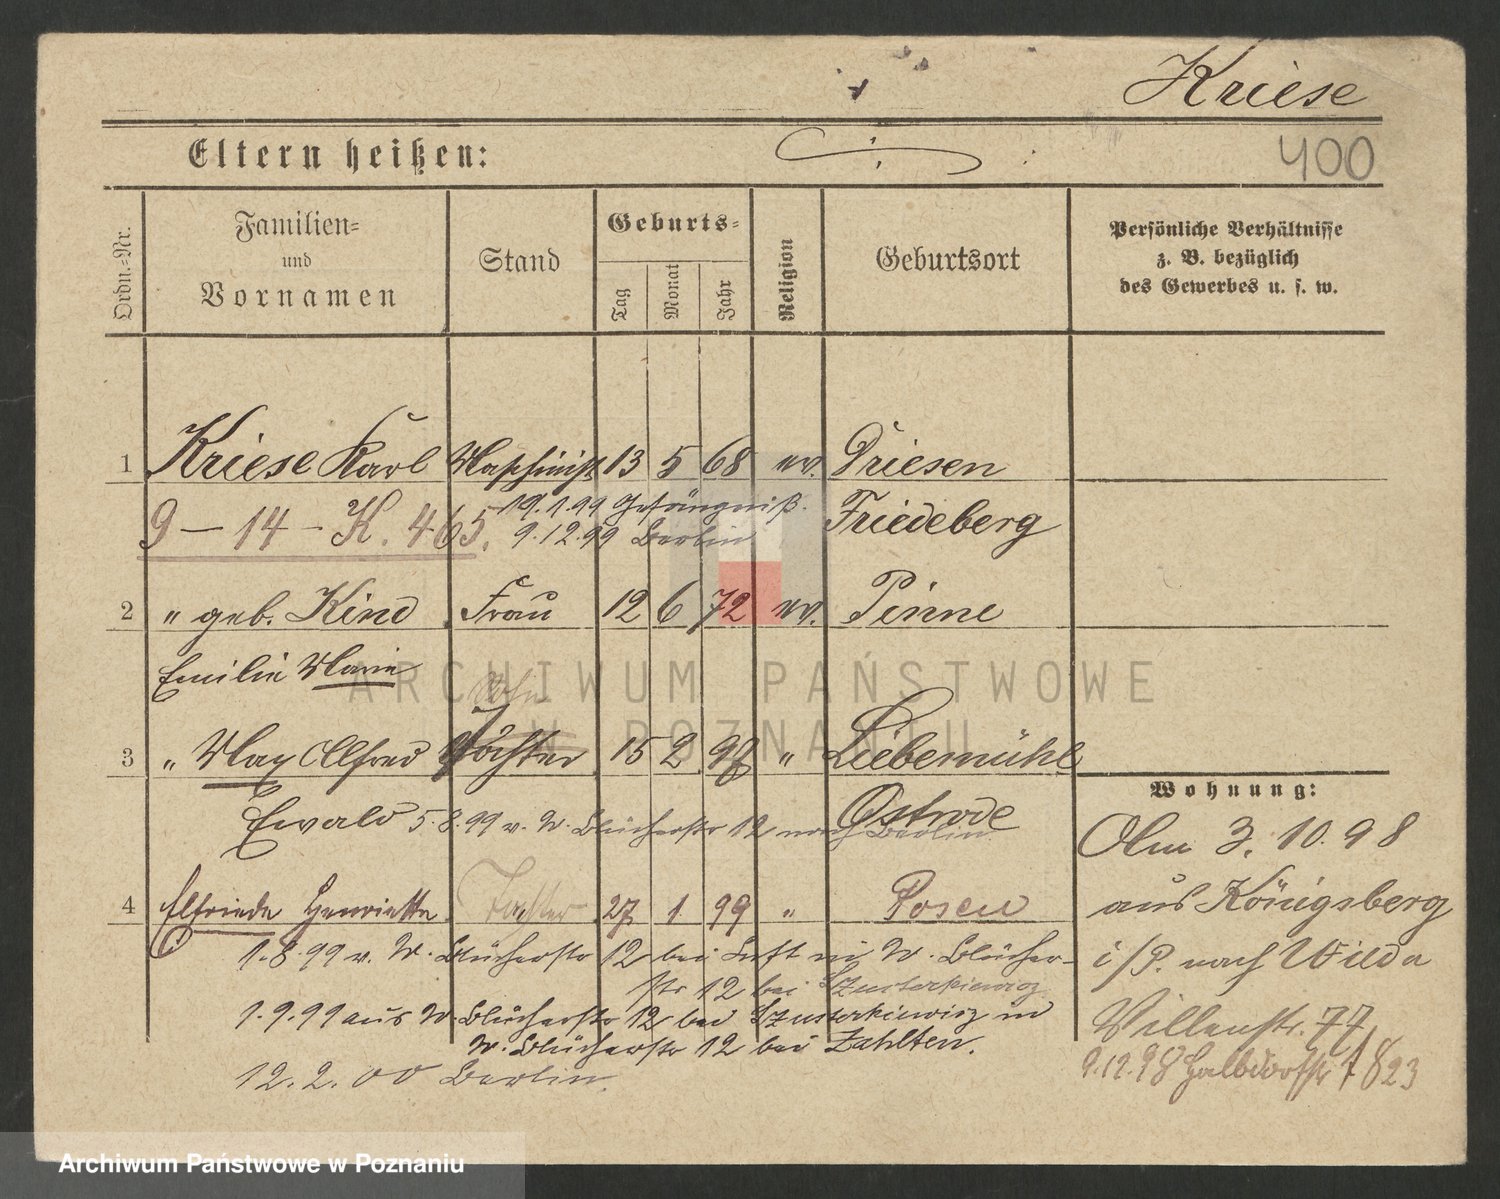 Kriese
400
Eltern heißen:
Ordn.-Nr.
Familien- und Vornamen
Stand
Geburts-
Tag
Monat
Jahr
Religion
Geburtsort
Persönliche Verhältnisse
z. B. bezüglich
des Gewerbes u. s. w.
1 Kriese Karl Maschinist 13 5 68 ev. Driesen
9 – 14 – K. 465.
19.1.99 Gefängniß. Friedeberg
9.12.99 Berlin
2 " geb. Kind Frau 12 6 72 ev. Pinne
Emilie Marie
Sohn
3 " Max Alfred Tochter 15 2 97 " Liebemühl
Wohnung:
Ewald 5.8.99 v. W. Blücherstr 12 nach Berlin.
Ostrode
4 Elfriede Henriette Tochter 27 1 99 " Posen
1.8.99 v. W. Blücherstr 12 bei Luft in W. Blücher-
str 12 bei
1.9.99 aus W. Blücherstr 12 bei in
W. Blücherstr 12 bei Zahlten.
12.2.00 Berlin.
Am 3. 10. 98
aus Königsberg
i/P. nach Wilda
Villenstr. 77
9.12.98 Halbdorfstr 23
ARCHIWUM PAŃSTWOWE
W POZNANIU
Archiwum Państwowe w Poznaniu